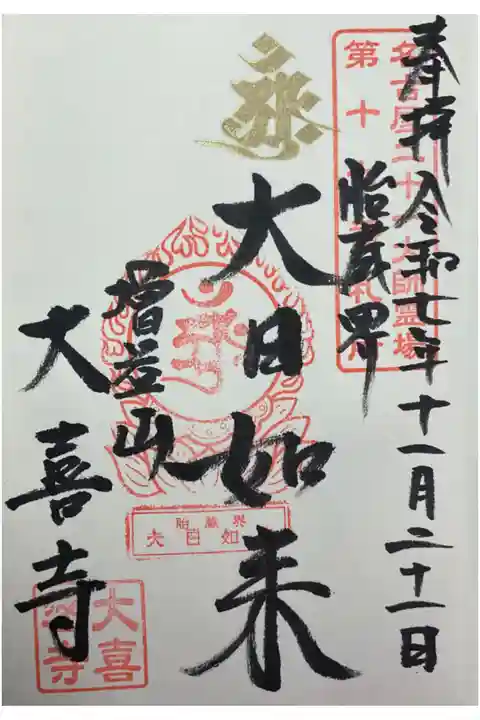 奉拝 令和七年十一月二十一日
名古屋二十一大師霊場
第十
胎蔵界
大日如来
増益山
大喜寺
胎蔵界
大日如来
大喜
寺